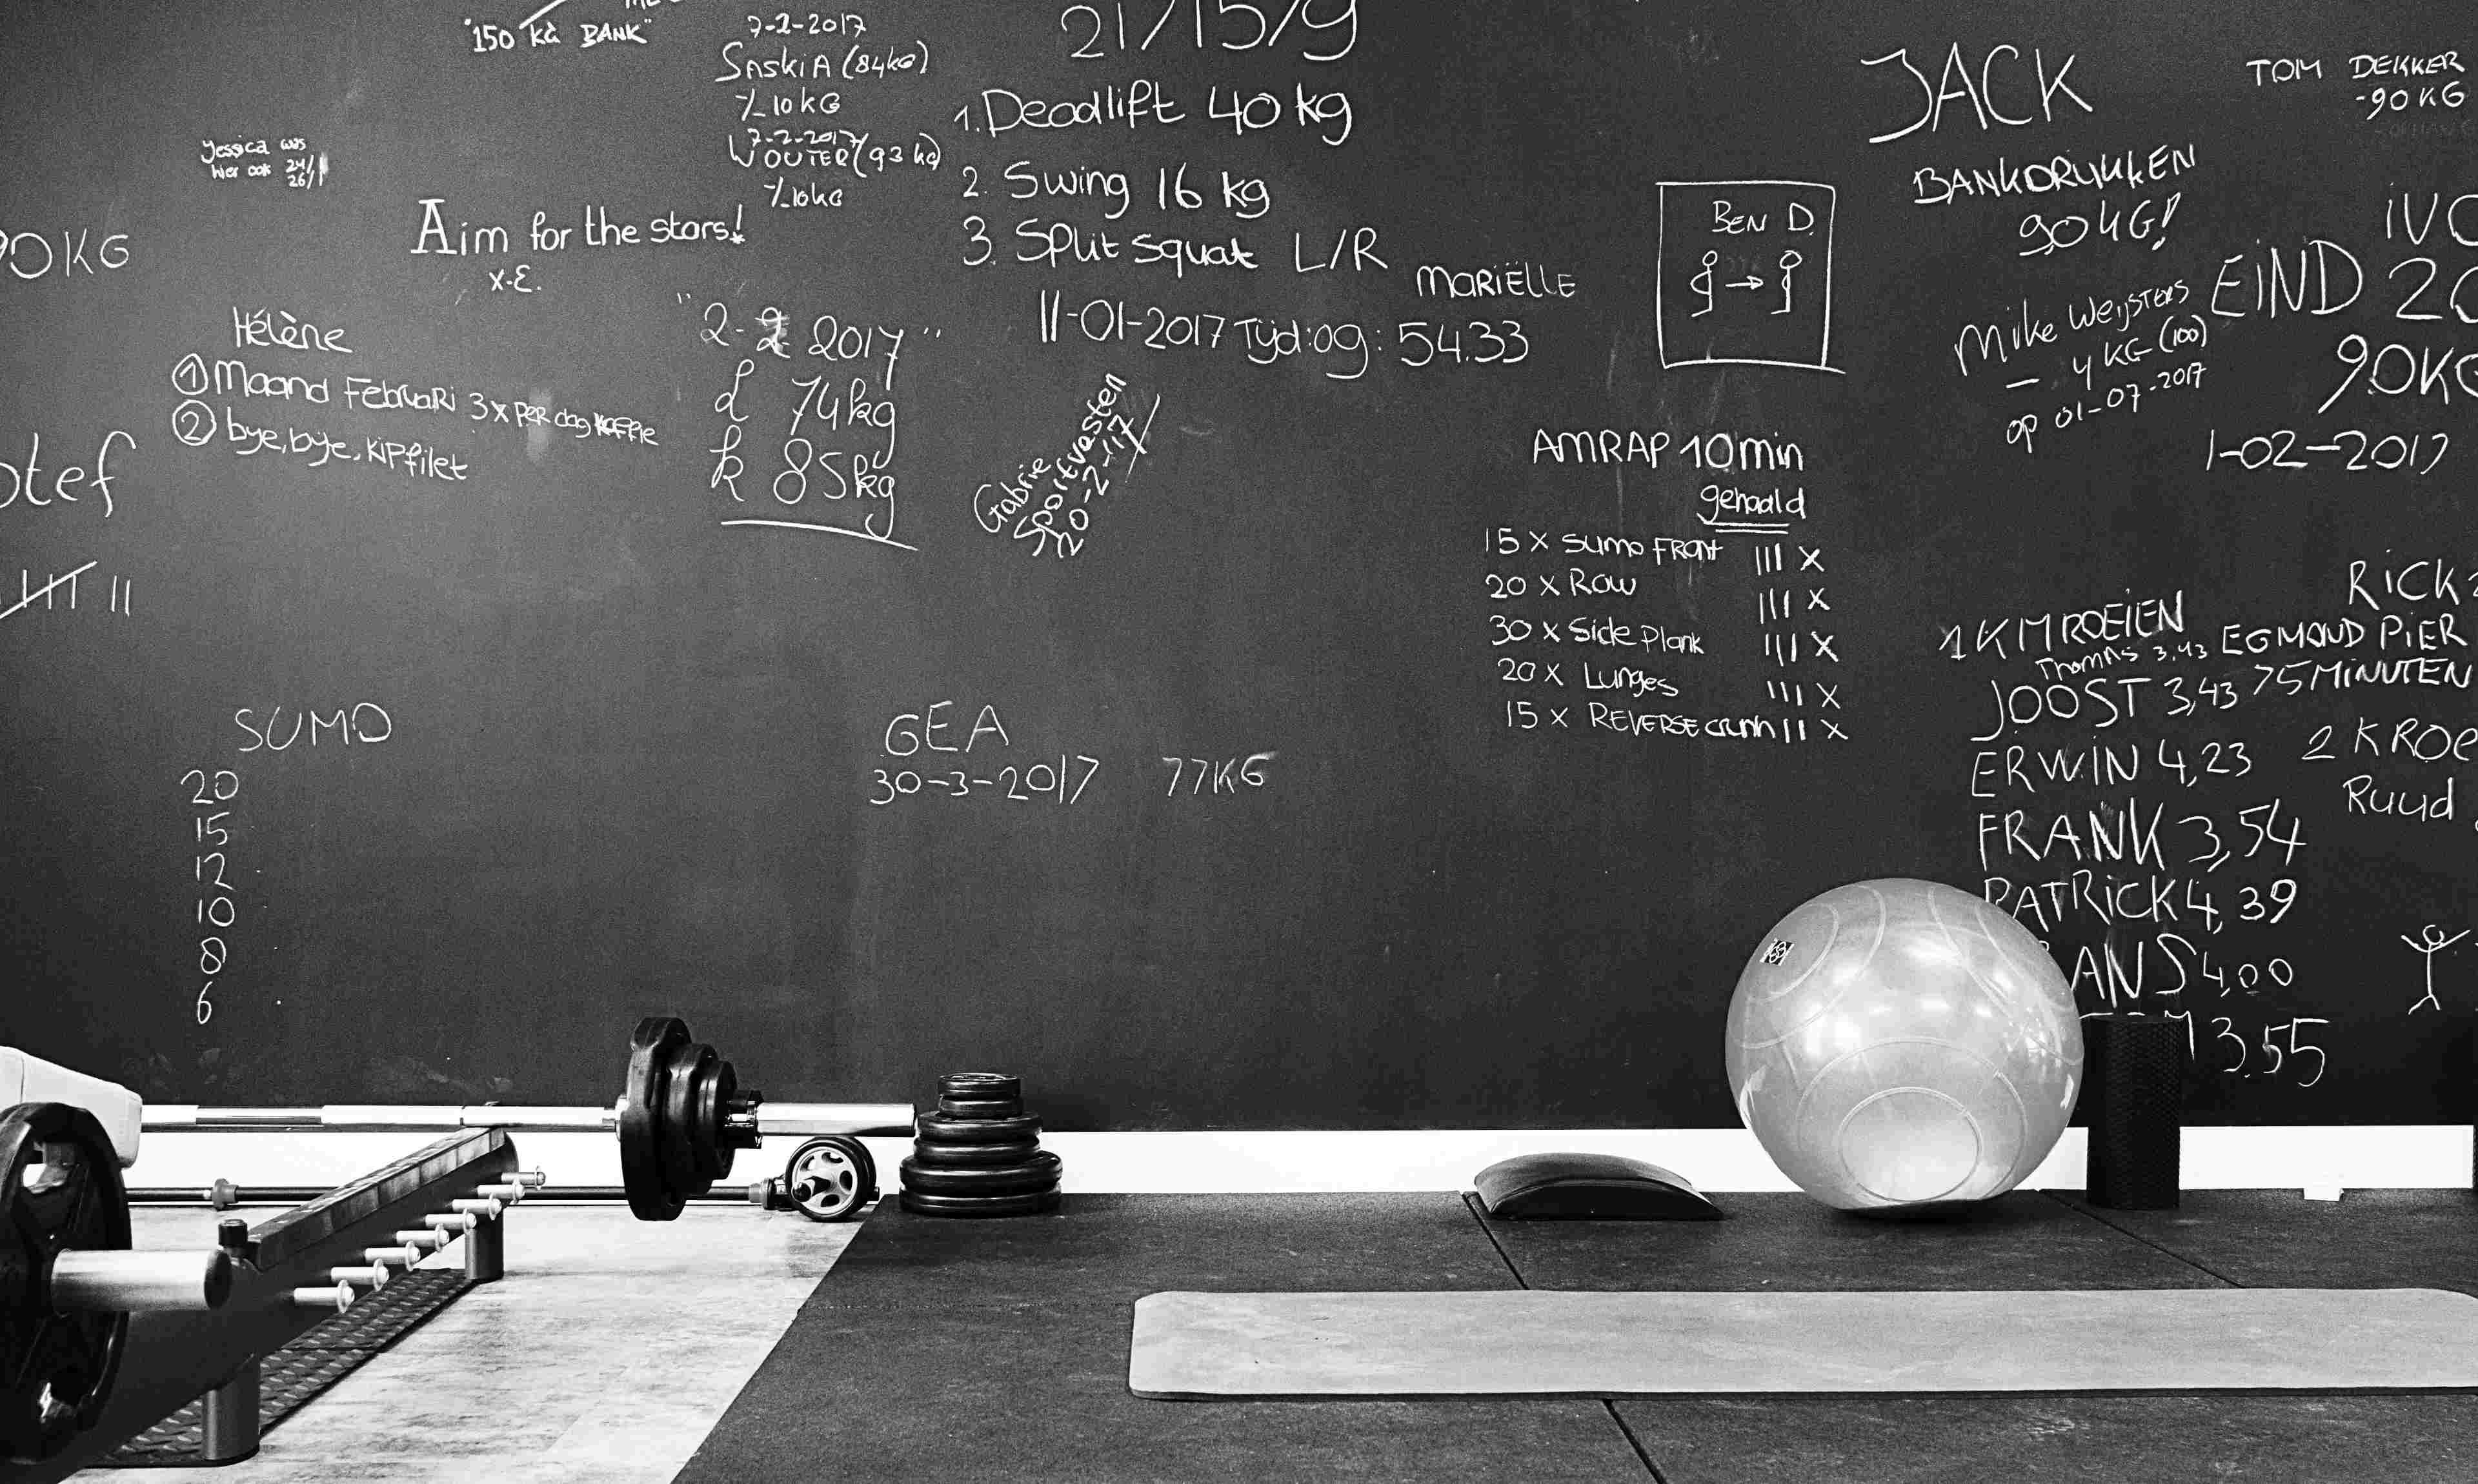 "150 kg BANK"
7-2-2017
SASKIA (84kg)
7-2-2017
WOUTER (93 kg)
21/15/9
1. Deadlift 40 kg
2. Swing 16 kg
3. Split squat L/R
MARIËLLE
11-01-2017 Tijd: 09:54.33
Jessica was
hier ook 24/1
26/1
Aim for the stars!
x-E.
90KG
Hélène
① Maand Februari 3x per dag koffie
② bye, bye, kipfilet
"2-2 2017"
d 74kg
k 85kg
Sportvasten
20-2-'17
otef
SUMO
20
15
12
10
8
6
GEA
30-3-2017 77KG
BEN D.
AMRAP 10min
gehaald
15 x sumo FRont III X
20 x Row III X
30 x Side Plank III X
20 x Lunges III X
15 x REVERSE crunh II X
JACK
BANKDRUKKEN
90 KG!
TOM DEKKER
-90 KG
Mike Weijsters
- 4 KG (100)
op 01-07-2017
IVO
EIND 20
90KG
1-02-2017
1 KM ROEIEN
Thomas 3,43
JOOST 3,43
ERWIN 4,23
FRANK 3,54
PATRICK 4,39
ANS 4,00
3.55
RICK
EGMOND PIER
75 MINUTEN
2 K ROE
Ruud